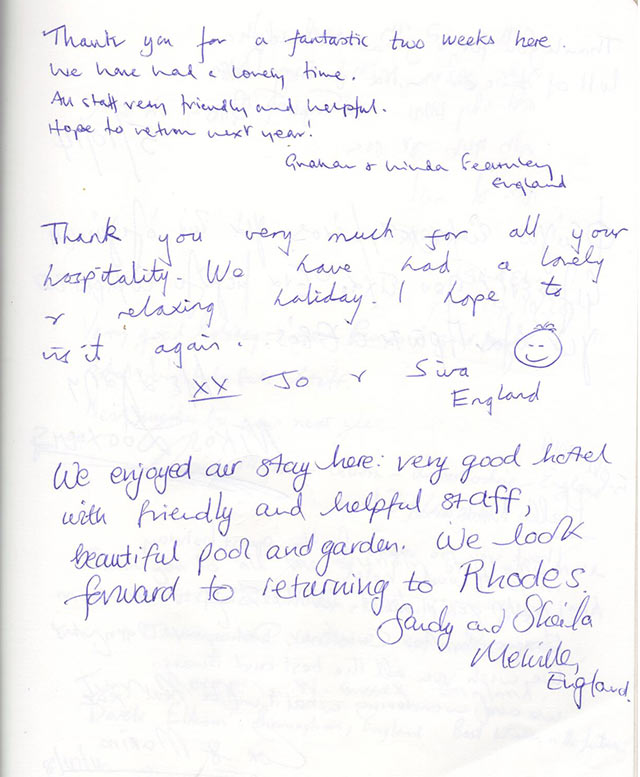 Thank you for a fantastic two weeks here.
We have had a lovely time.
All staff very friendly and helpful.
Hope to return next year!
Graham & Linda Fearnley
England
Thank you very much for all your
hospitality. We have had a lovely
& relaxing holiday. I hope to
visit again.
XX Jo & Siva
England
We enjoyed our stay here: very good hotel
with friendly and helpful staff,
beautiful pool and garden. We look
forward to returning to Rhodes.
Sandy and Sheila
Melville,
England.